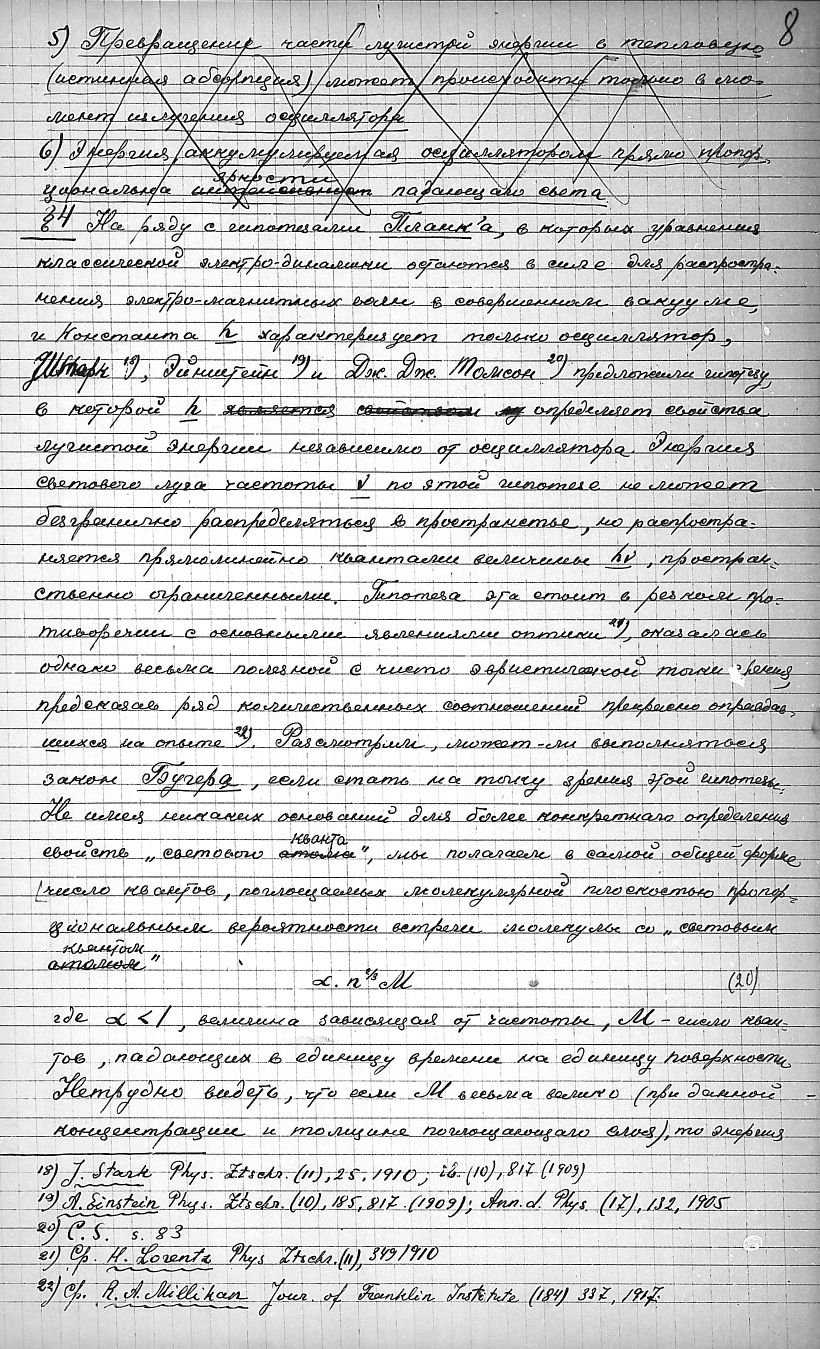 8
5) Превращение части лучистой энергии в тепловую
(истинная абсорпция) может происходить только в мо-
мент излучения осциллятора
6) Энергия, аккумулируемая осциллятором прямо пропор
яркости
циональна интенсивност падающаго света
§4 На ряду с гипотезами Планк'а, в которых уравнения
классической электро-динамики остаются в силе для распростра-
нения электро-магнитных волн в совершенном вакууме,
и Константа h характеризует только осциллятор,
Штарк 18), Эйнштейн 19) и Дж. Дж. Томсон 20) предложили гипотезу,
в которой h является свойством определяет свойства
лучистой энергии независимо от осциллятора. Энергия
светового луча частоты ν по этой гипотезе не может
безгранично распределяться в пространстве, но распростра-
няется прямолинейно квантами величины hν, простран-
ственно ограниченными. Гипотеза эта стоит в резком про-
тиворечии с основными явлениями оптики 21), оказалась
однако весьма полезной с чисто эвристической точки зрения,
предсказав ряд количественных соотношений прекрасно оправдав-
шихся на опыте 22). Разсмотрим, может-ли выполняться
закон Бугера, если стать на точку зрения этой гипотезы.
Не имея никаких оснований для более конкретнаго определения
кванта
свойств „светового атома", мы полагаем в самой общей форме
число квантов, поглощаемых молекулярной плоскостью пропор-
циональным вероятности встречи молекулы со „световым
квантом
атомом"
α. n^2/3 M (20)
где α < 1, величина зависящая от частоты, M – число кван-
тов, падающих в единицу времени на единицу поверхности
Нетрудно видеть, что если M весьма велико (при данной
концентрации и толщине поглощающаго слоя), то энергия
18) J. Stark Phys. Ztschr. (11), 25, 1910; ib. (10), 817 (1909)
19) A. Einstein Phys. Ztschr. (10), 185, 817 (1909); Ann. d. Phys. (17), 132, 1905
20) C. S. s. 83
21) Ср. H. Lorentz Phys Ztschr. (11), 349 1910
22) Ср. R. A. Millikan Jour. of Franklin Institute (184) 337, 1917.